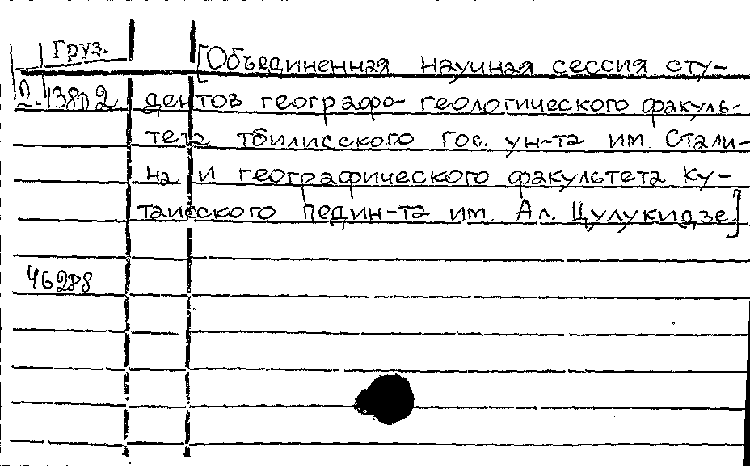 Груз.
[Объединенная научная сессия сту-
П.43802 дентов географо-геологического факуль-
тета тбилисского гос. ун-та им. Стали-
на и географического факультета Ку-
таисского педин-та им. Ал. Цулукидзе]
46288